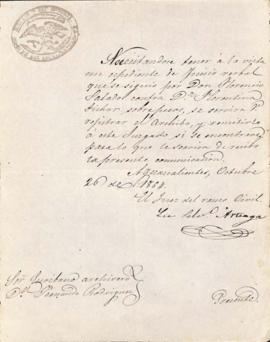 Necesitandose tener á la vista
un espediente de Juicio verbal
que se siguió por Don Florencio
Salado contra D. Florentino
sobre pesos, se servirá V.
registrar el Archivo, y remitirlo
á este Juzgado si se encontrare
para lo que le servirá de recibo
la presente comunicacion.
Aguascalientes, Octubre
26 de 1854.
El Juez del ramo Civil.
Arteaga
Sor archivero
D. Fernando Rodriguez
Presente.